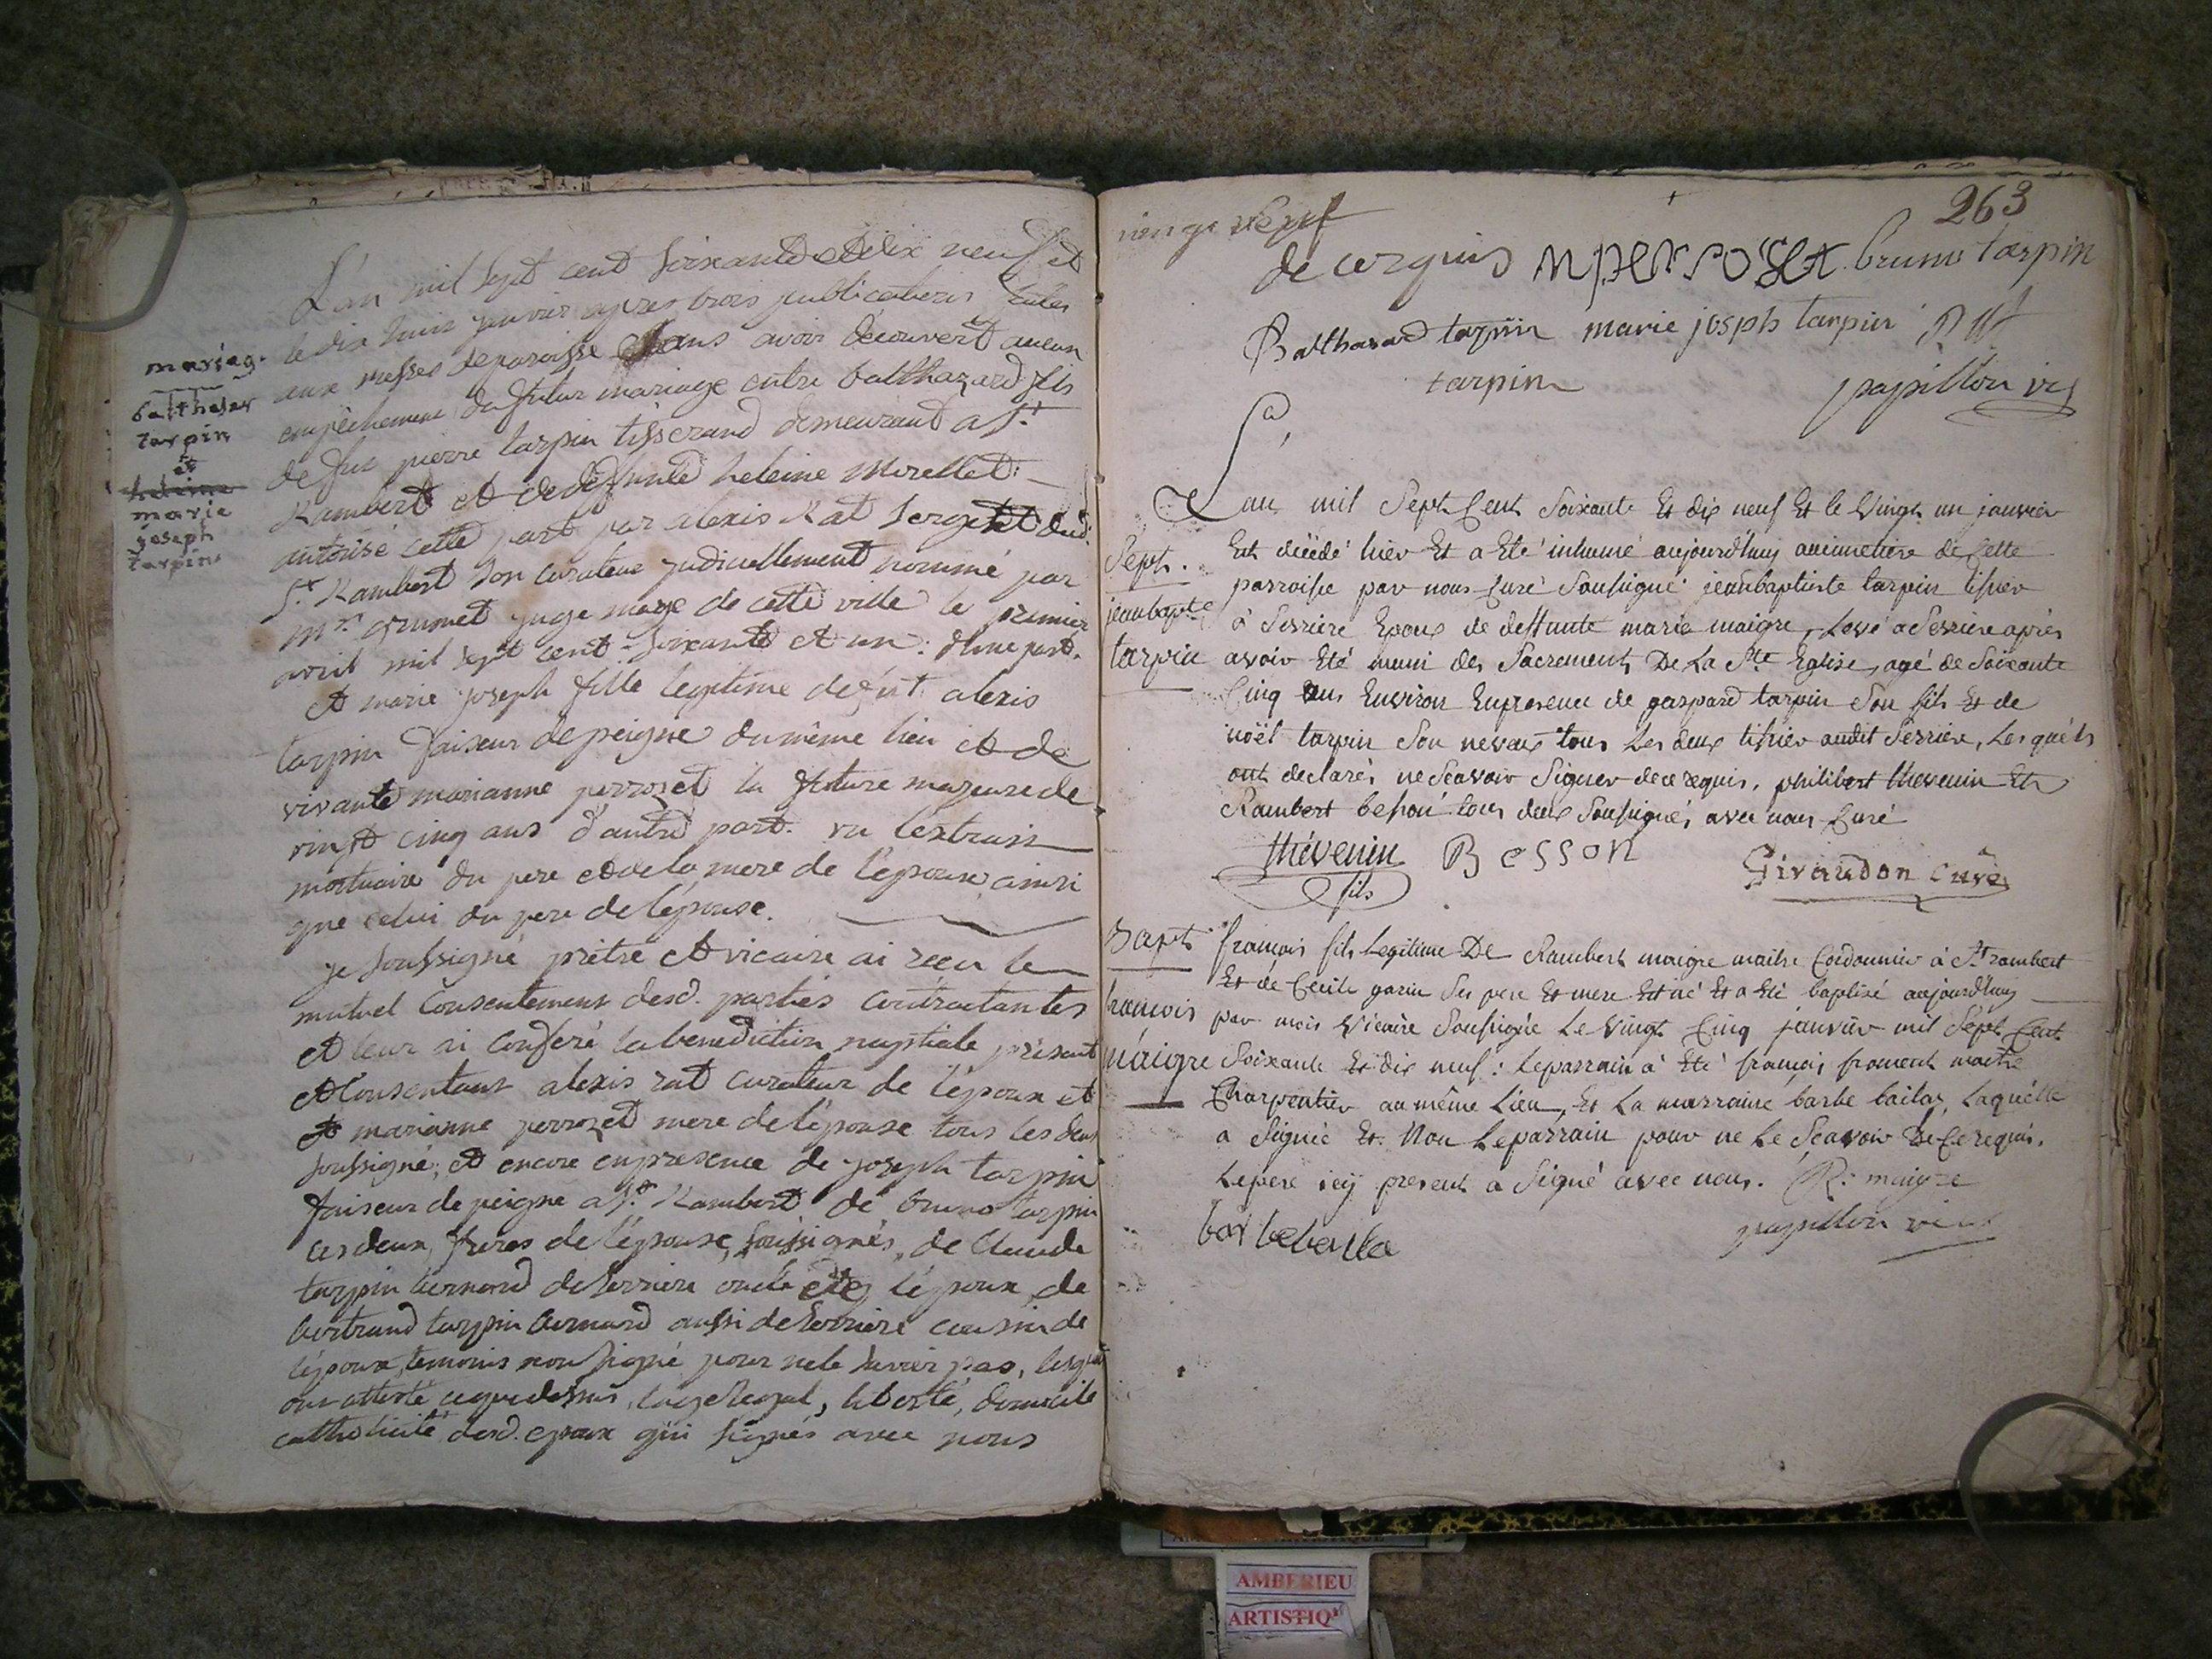 mariag.
balthasar
tarpin
et
heleine
marie
joseph
tarpin
L'an mil sept cent soixante et dix neuf et
le dix huit janvier apres trois publications faites
aux messes de paroisse sans avoir decouvert aucun
empêchement du futur mariage entre balthazard fils
de feu pierre tarpin tisserand demeurant a St
Rambert et de deffunte heleine Morellet
autorisé cette part par alexis Rat sergent dud.
St Rambert son curateur judiciellement nommé par
mr. grumet juge mage de cette ville le premier
avril mil sept cent soixante et un : d'une part.
et marie joseph fille legitime de fut alexis
tarpin faiseur de peigne du même lieu et de
vivante marianne perrozet la future majeure de
vingt cinq ans d'autre part. vu l'extrait
mortuaire du pere et de la mere de l'epoux ainsi
que celui du pere de l'épouse.
je soussigné prêtre et vicaire ai receu le
mutuel consentement desd. parties contractantes
et leur ai conferé la benediction nuptiale présent
et consentant alexis rat curateur de l'epoux et
et marianne perrozet mere de l'épouse tous les deux
soussigné, et encore en presence de joseph tarpin
faiseur de peigne a St. Rambert de bruno tarpin
ces deux freres de l'épouse, soussignés, de Claude
tarpin bernard de serriere oncle de l'epoux, de
bertrand tarpin bernard aussi de serriere cousin de
l'époux, temoins non signé pour ne le savoir pas, lesquels
ont attesté ce que dessus, l'age legal, liberté, domicile
catholicité desd. epoux qui signés avec nous
263
de ce requis bruno tarpin
Balthasard tarpin marie josph tarpin Rat
tarpin papillon vic
L'an mil Sept Cent Soixante Et dix neuf Et le Vingt un janvier
Sept. Est décédé hier Et a Eté inhumé aujourd'huy au cimetiere de Cette
parroisse par nous Curé Soussigné jeanbaptiste tarpin tissier
jeanbapte à Serriere Epoux de deffunte marie maigre, Levé a Serriere après
tarpin avoir Eté muni des Sacrements De La Ste Eglise, agé de Soixante
Cinq ans Environ En presence de gaspard tarpin Son fils Et de
noël tarpin Son neveux tous Les deux tissier audit Serriere, Lesquels
ont declarés ne Scavoir Signer de ce requis, philibert thevenin Et
Rambert besson tous deux Soussignés avec nous Curé
thévenin Besson Girandon Curé
fils
Bapt françois fils Legitime De Rambert maigre maitre Cordonnier à St rambert
Et de Cecile garin Ses pere Et mere Est né Et a Eté baptisé aujourd'huy
francois par mois Vicaire Soussigné Le Vingt Cinq janvier mil Sept Cent
maigre Soixante Et dix neuf : Le parrain à Eté françois froment maitre
Charpentier au même Lieu, Et La marraine barbe bailas, Laquelle
a Signée Et Non Le parrain pour ne Le Scavoir De Ce requis.
Le pere icy present a Signé avec nous. R. maigre
papillon vic
AMBERIEU
ARTISTIQ